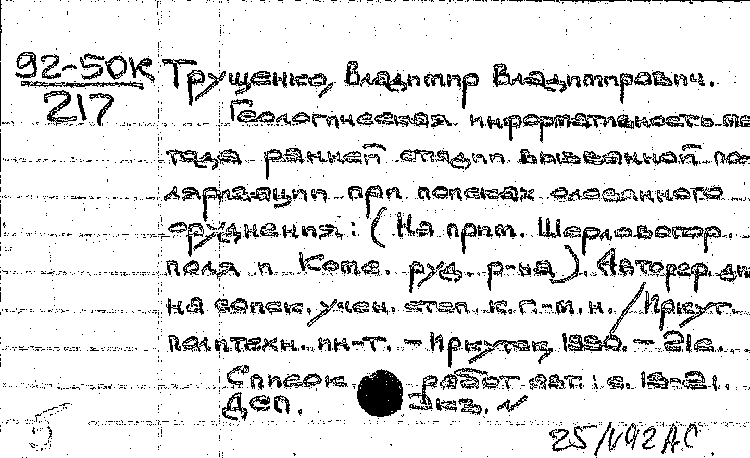 92-50К
217
Трущенко, Владимир Владимирович.
Геологическая информативность ме
тода ранней стадии вызванной по-
ляризации при поисках оловянного
оруднения: (На прим. Шерловогор.
поля и Коме. руд. р-на). Автореф. дис.
на соиск. учен. степ. к.г.-м.н. / Иркут.
политехн. ин-т. – Иркутск, 1990. – 21с.
Список работ авт.: с. 19-21.
Деп. Экз.
25/V92